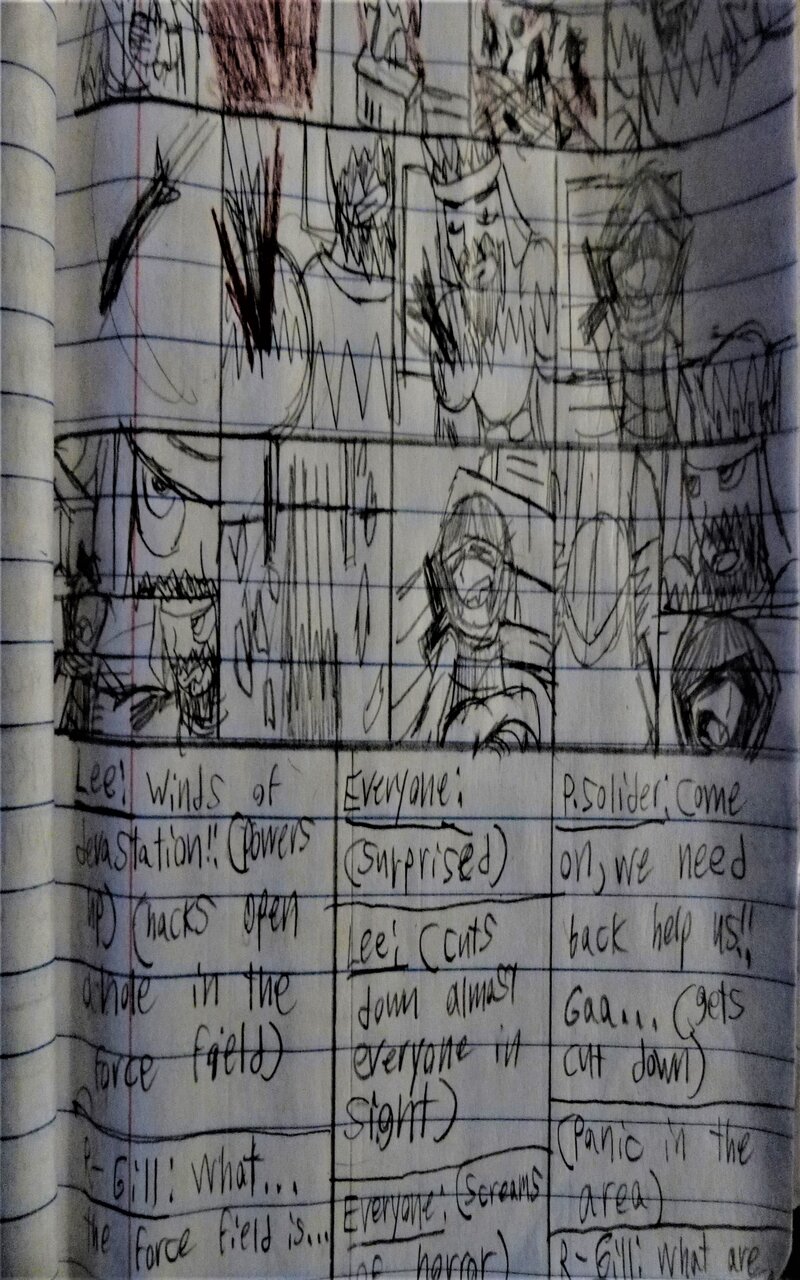 Lee: Winds of
devastation!! (Powers
up) (hacks open
a hole in the
force field)
R-Gill: What...
the force field is...
Everyone:
(surprised)
Lee: (cuts
down almost
everyone in
sight)
Everyone: (screams
of horror)
P.Solider: Come
on, we need
back help us!!
Gaa... (gets
cut down)
(Panic in the
area)
R-Gill: What are